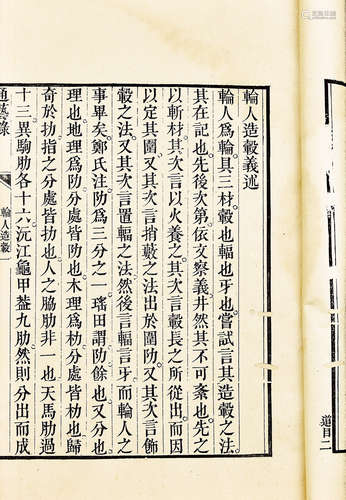 輪人造轂義述
輪人爲輪具三材轂也輻也牙也嘗試言其造轂之法
其在記也先後次第依文察義井然其不可紊也先之
以斬材其次言以火養之其次言轂長之所從出而因
以定其圍又其次言捎藪之法出於圍阞又其次言飾
轂之法又其次言置輻之法然後言輻言牙而輪人之
事畢矣鄭氏注阞爲三分之一瑤田謂阞餘也又分也
理也地理爲阞分處皆阞也木理爲朸分處皆朸也歸
奇於扐指之分處皆扐也人之脇肋非一也天馬肋過
十三異駒肋各十六沅江龜甲葢九肋然則分出而成
通藝錄
輪人造轂
道目二